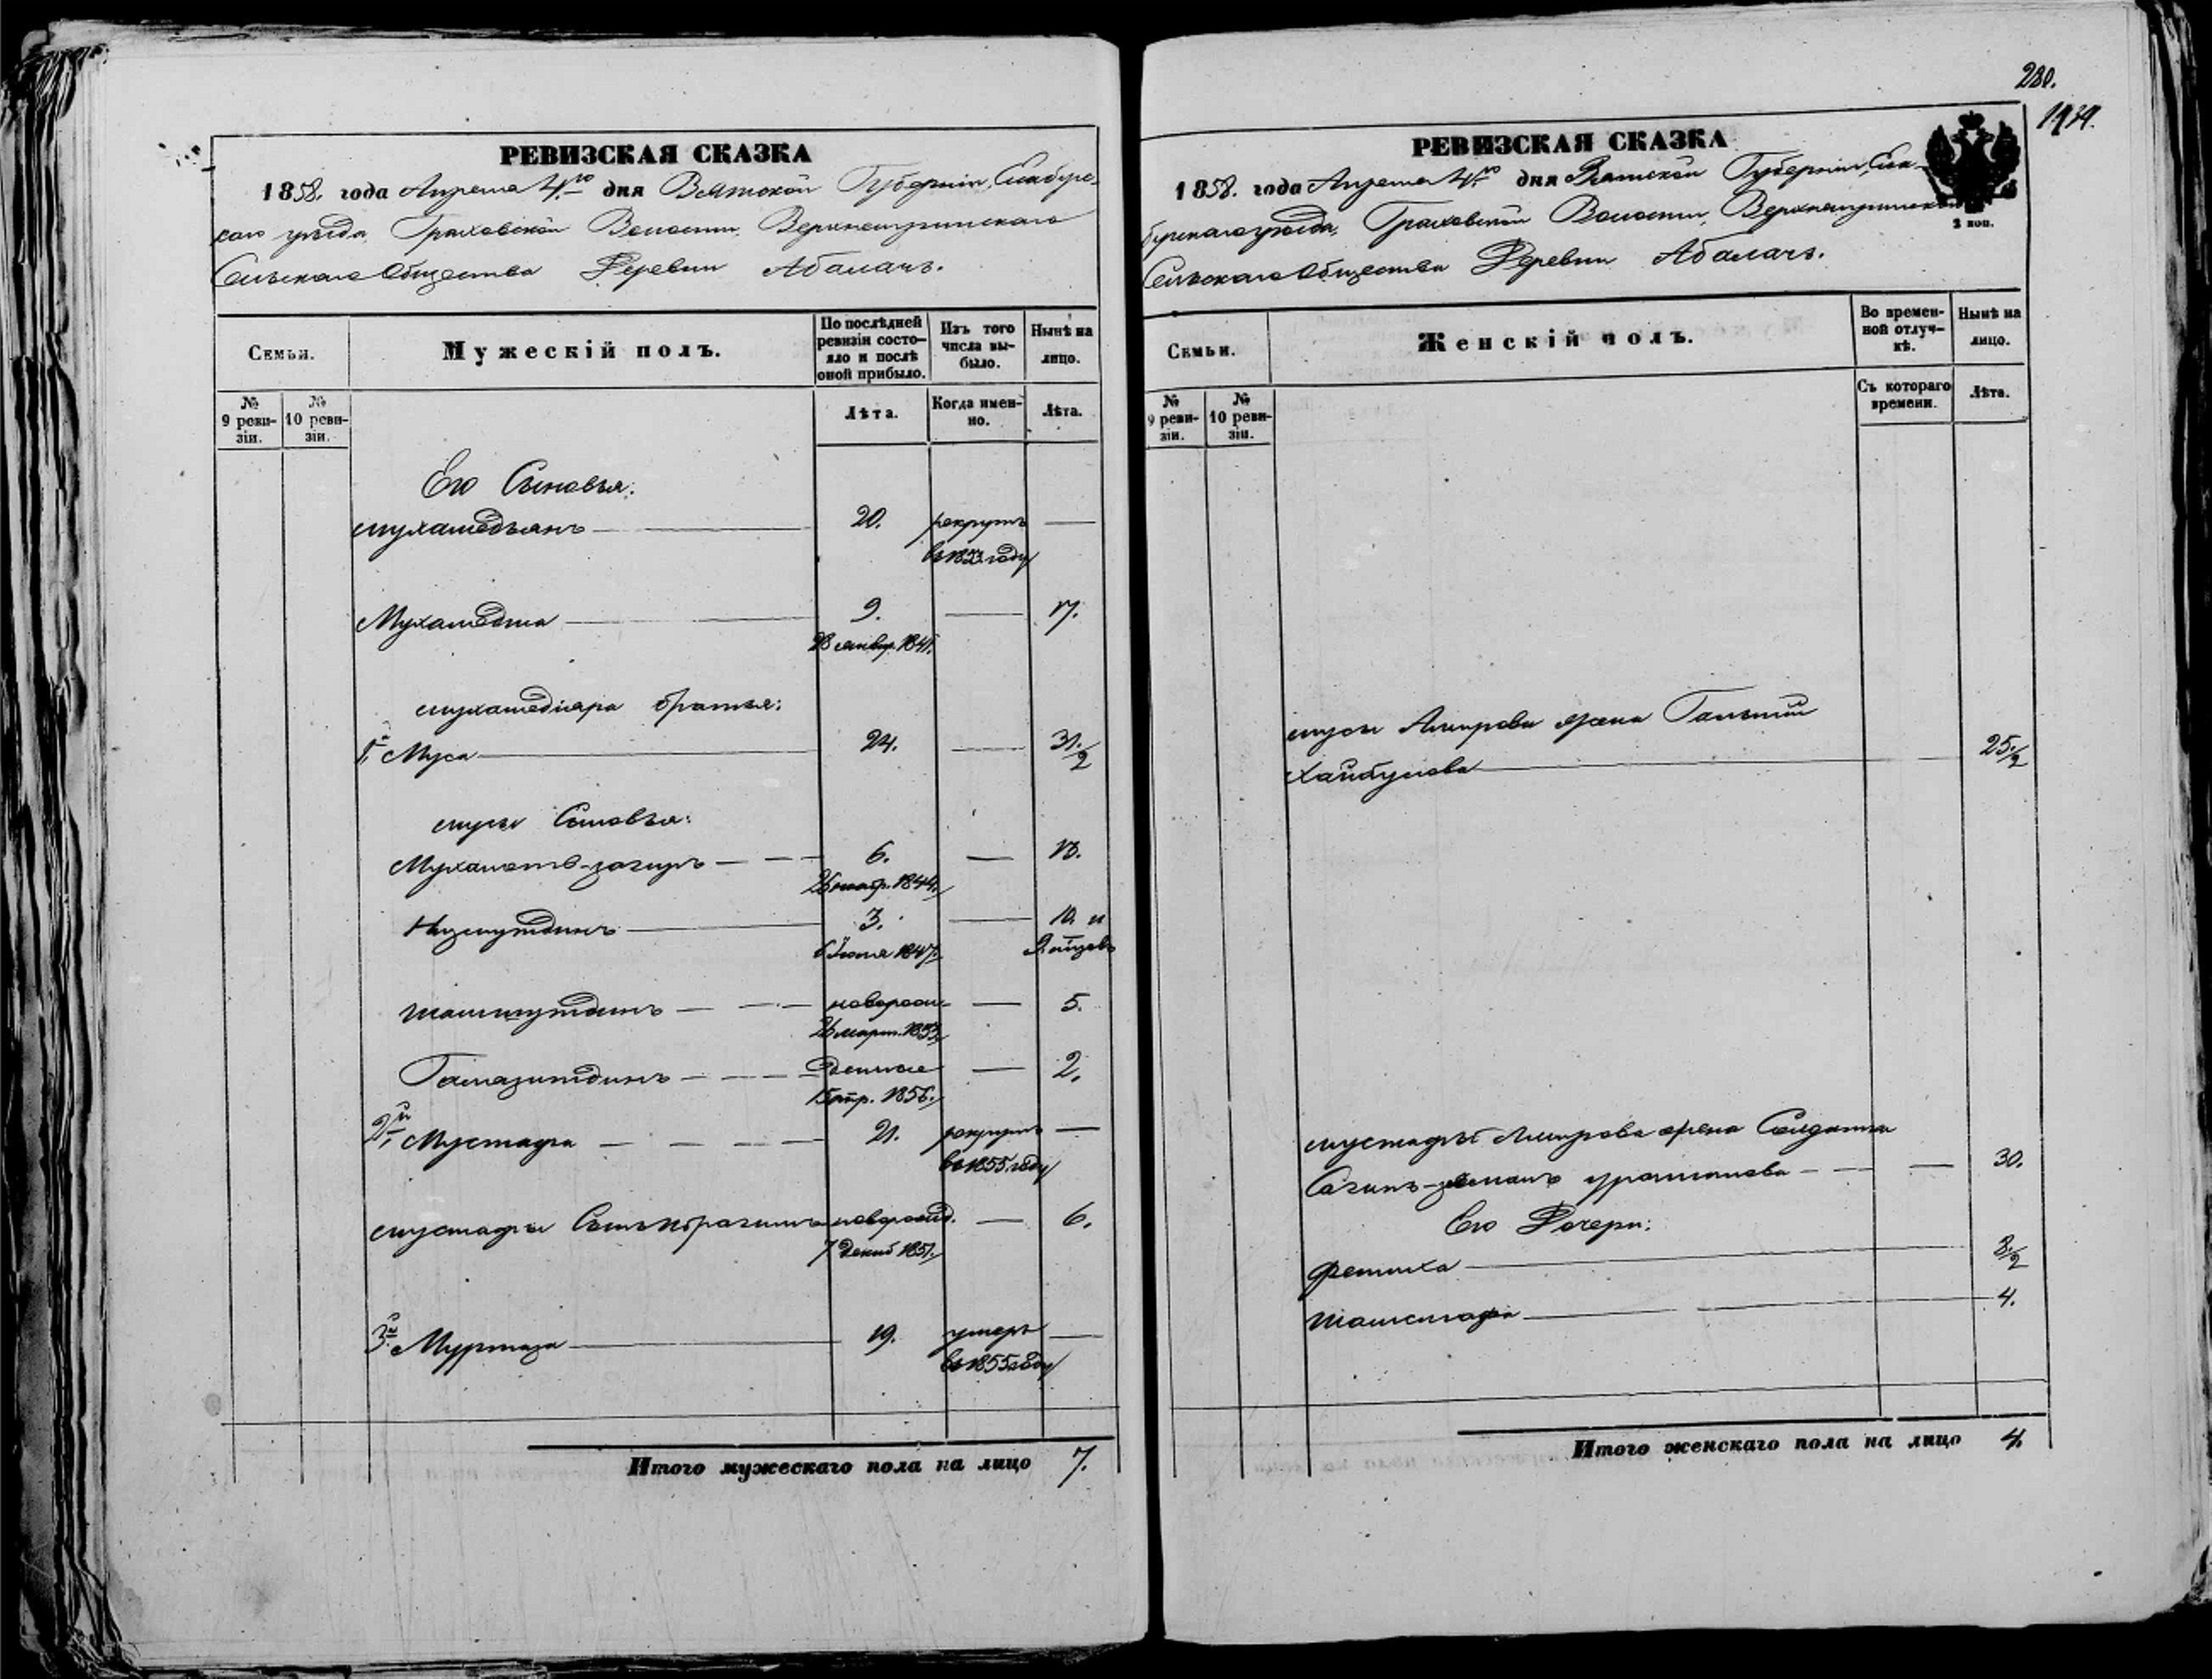 РЕВИЗСКАЯ СКАЗКА
1858. года Апреля 4го дня Вятской Губернiи, Елабугс-
каго уѣзда, Граховской Волости, Верхнеигринскаго
Сельскаго Общества Деревни Абалачь.
Семьи.
Мужескiй полъ.
По послѣдней ревизiи состо-яло и послѣ оной прибыло.
Изъ того числа вы-было.
Нынѣ на лицо.
№ 9 реви-зiи.
№ 10 реви-зiи.
Лѣта.
Когда имен-но.
Лѣта.
Его Сыновья:
мухамедьянъ 20. рекрутъ
въ 1853 году
Мухаметша 9. 17.
28 январ. 1841.
мухамедiяра братья:
1й Муса 24. 31 1/2
мусы Сыновья:
Мухаметъ-загиръ 6. 13.
1844.
Низмутдинъ 3. 10. и
6 Iюня 1847.
новорож- 5.
26 март. 1853
денные 2.
15 апр. 1856.
2й Мустафа 21. рекрутъ
въ 1855 году
мустафы Сынъ Ибрагимъ новорожд. 6.
7 Декаб 1851.
3й Муртаза 19. умеръ
въ 1855 году
Итого мужескаго пола на лицо 7.
280.
1939.
РЕВИЗСКАЯ СКАЗКА
1858. года Апреля 4го дня Вятской Губернiи, Ела-
бугскаго уѣзда, Граховской Волости, Верхнеигринскаго
Сельскаго Общества Деревни Абалачь.
2 коп.
Семьи.
Женскiй полъ.
Во времен-ной отлуч-кѣ.
Нынѣ на лицо.
№ 9 реви-зiи.
№ 10 реви-зiи.
Съ котораго времени.
Лѣта.
мусы Амирова жена
Хайбулова 25 1/2
мустафы Амирова жена Солдатка
30.
Его Дочери:
8 1/2
4.
Итого женскаго пола на лицо 4.